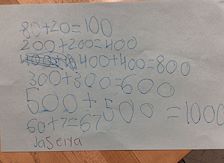 80+20=100
200+200=400
400+400=800
300+300=600
500+500=1000
60+7=67